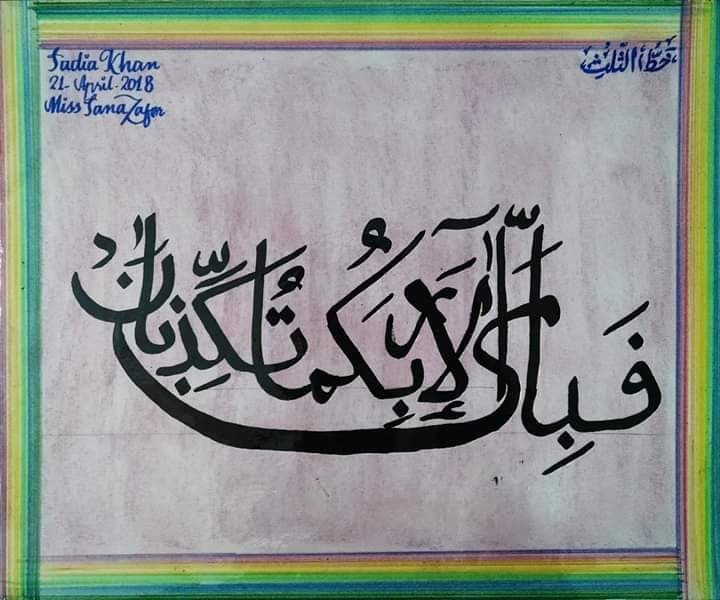 Sadia Khan
21- April-2018
Miss Sana Zafar
خطّ الثّلث
فَبِاَيِّ اٰلَآءِ رَبِّكُمَا تُكَذِّبَانِ